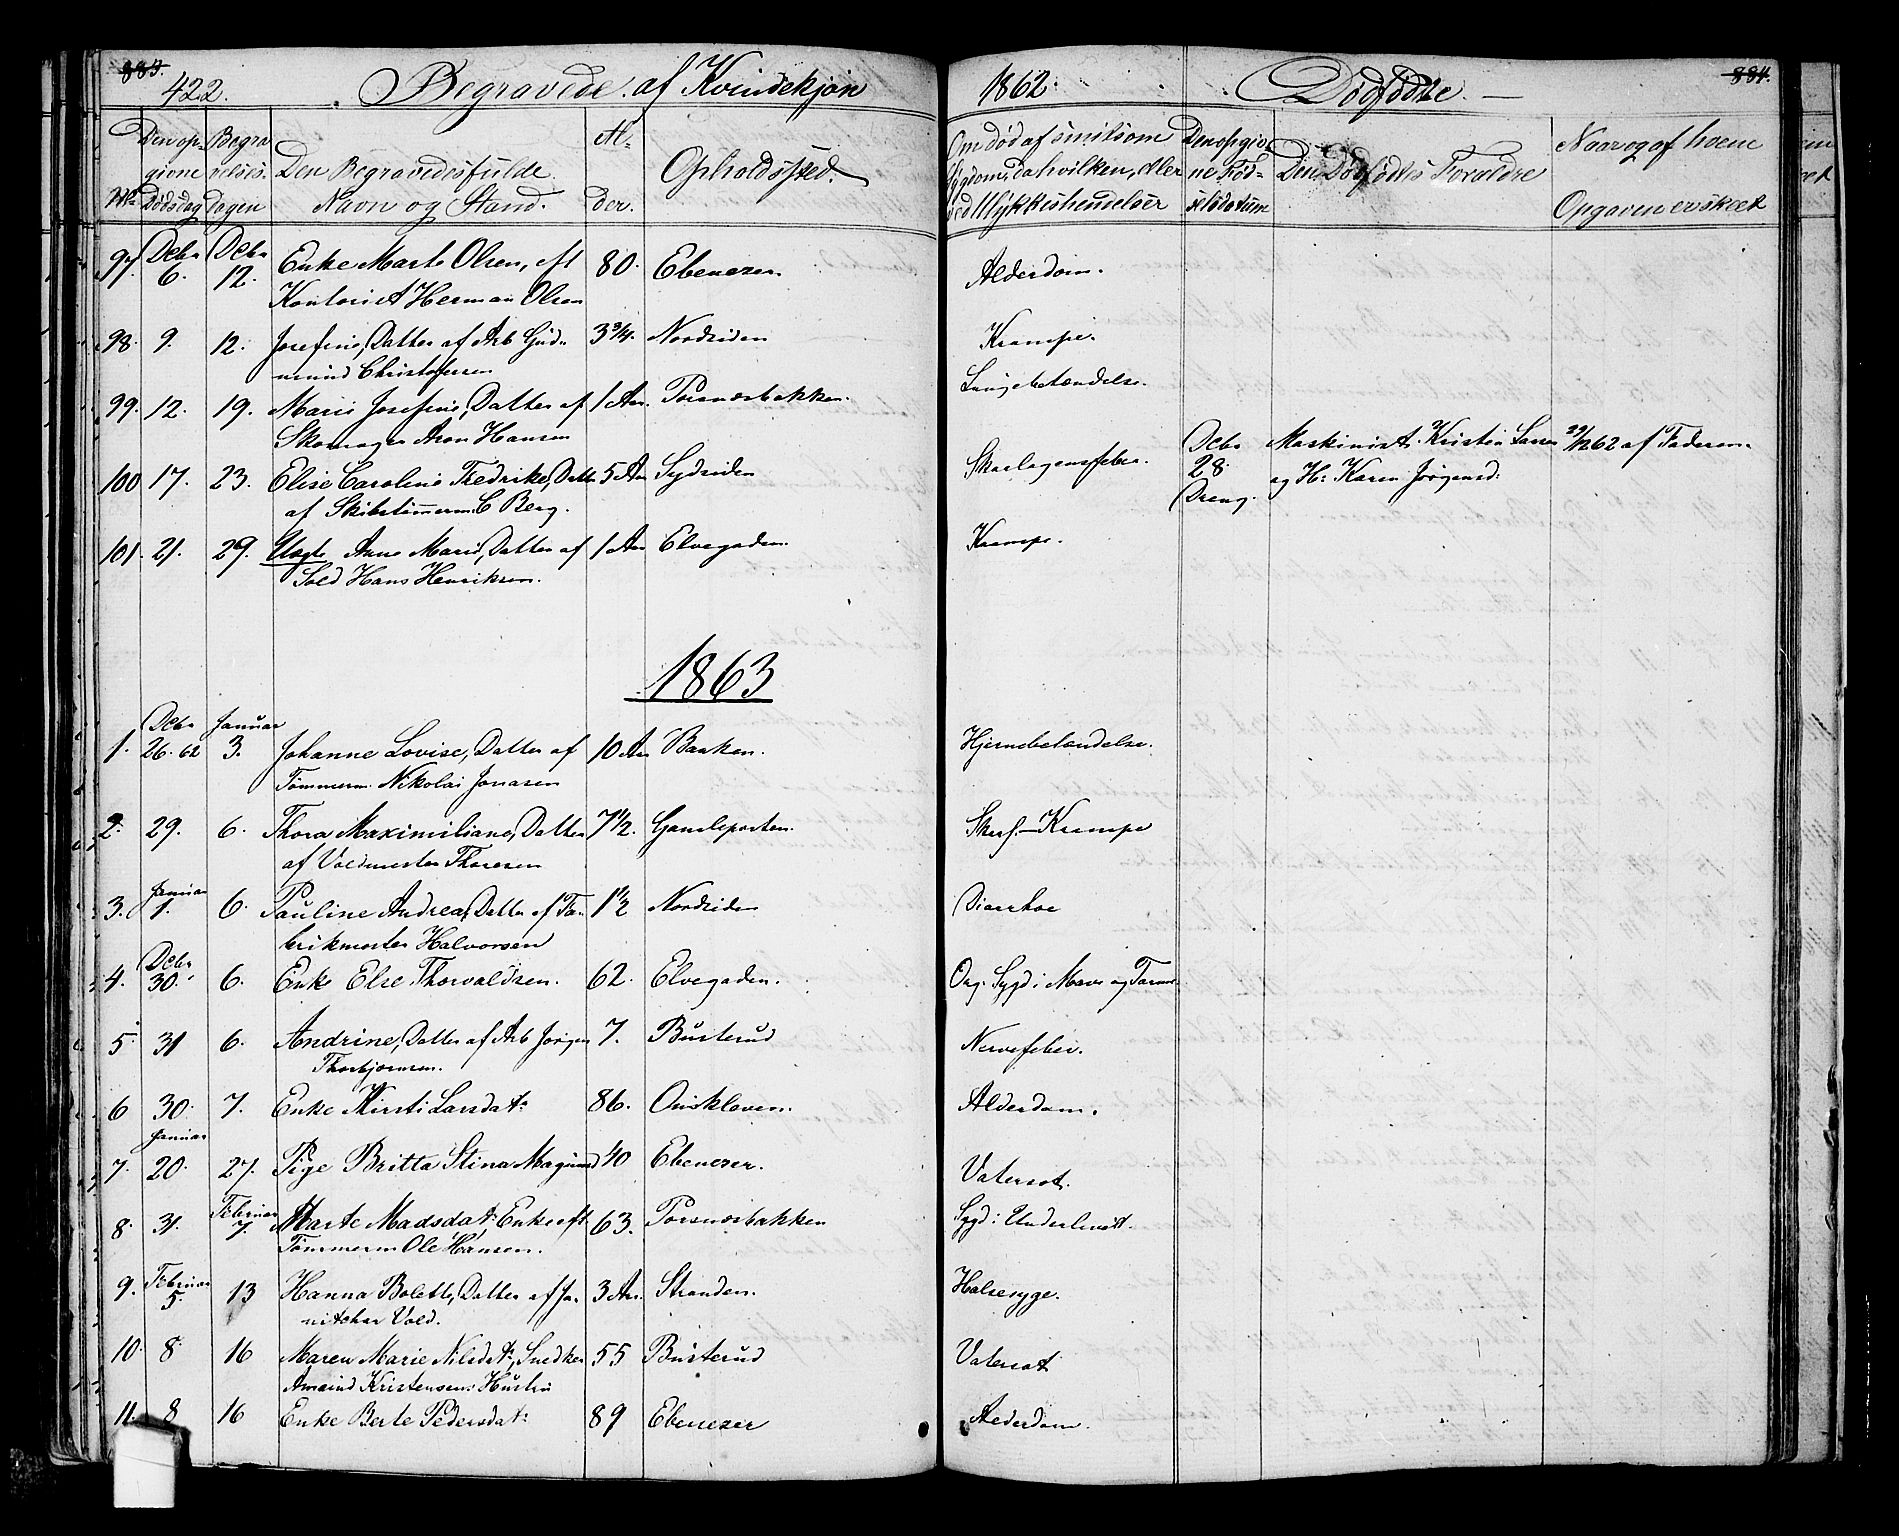 883.
422.
Begravede af Kvindekjøn
1862.
Dødfødte.
884.
No
Den op-
givne
Dødsdag
Begra
velses.
Dagen
Den Begravedes fulde
Navn og Stand.
Al-
der.
Opholdssted.
Om død af smitsom
Sygdom, da hvilken, eller
ved Ulykkeshendelser
Den opgiv
ne Fød-
selsdatum
Den Dødfødtes Forældre
Naar og af hvem
Opgaven er skeet
97. Decbr 6. Decbr 12. Enke Marte Olsen, eft 80. Ebenezer. Alderdom.
Kontorist Herman Olsen
98. 9. 12. Josefine, Datter af Arb Gud- 3 3/4. Nordsiden Krampe.
mund Christofersen
99. 12. 19. Marie Josefine, Datter af 1 Aar. Torsnæsbakken. Lungebetændelse.
Skomager Aron Hansen
100 17. 23. Elise Caroline Fredrike, Datter 5 Aar Sydsiden Skarlagensfeber.
af Skibstømmerm. C Berg.
Decbr
28.
Dreng.
Maskinist Kristen Larsen
og H: Karen Jørgensd:
29/12 62 af Faderen
101. 21. 29. Uægte Anne Marie, Datter af 1 Aar Elvegaden. Krampe.
Sold Hans Henriksen.
1863
1. Decbr 26. 62 Januar 3. Johanne Lovise, Datter af 10 Aar Banken. Hjernebetændelse.
Tømmerm. Nikolai Jonasen
2. 29. 6. Thora Maximiliane, Datter 7 1/2. Gamleporten. Skarf.-Krampe
af Voldmester Thoresen
3. Januar 1. 6. Pauline Andrea, Datter af Fa- 1 1/2 Nordsiden Diarrhoe
brikmester Halvorsen
4. Decbr 30. 6. Enke Else Thorvaldsen. 62. Elvegaden. Org. Sygd i Mave og Tarme
5. 31 6. Andrine, Datter af Arb Jørgen 7. Busterud Nervefeber.
Thorbjørnsen.
6 30. 7. Enke Kirsti Larsdat: 86. Ouskleven. Alderdom.
7. Januar 20. 27. Pige Britta Stina Magnusd 40 Ebenezer. Vatersot.
8. 31. Februar 7. Marte Madsdat: Enke eft 63. Torsnæsbakken Sygd i Underlivet.
Tømmerm Ole Hansen.
9. Februar 5. 13 Hanna Bolette, Datter af Ja- 3 Aar. Stranden. Halsesyge.
nitchar Vold.
10. 8. 16 Maren Marie Nilsdat:, Snedker 55 Busterud Vatersot
Amund Kristensens Hustru
11. 8 16 Enke Berte Pedersdat: 89 Ebenezer Alderdom.